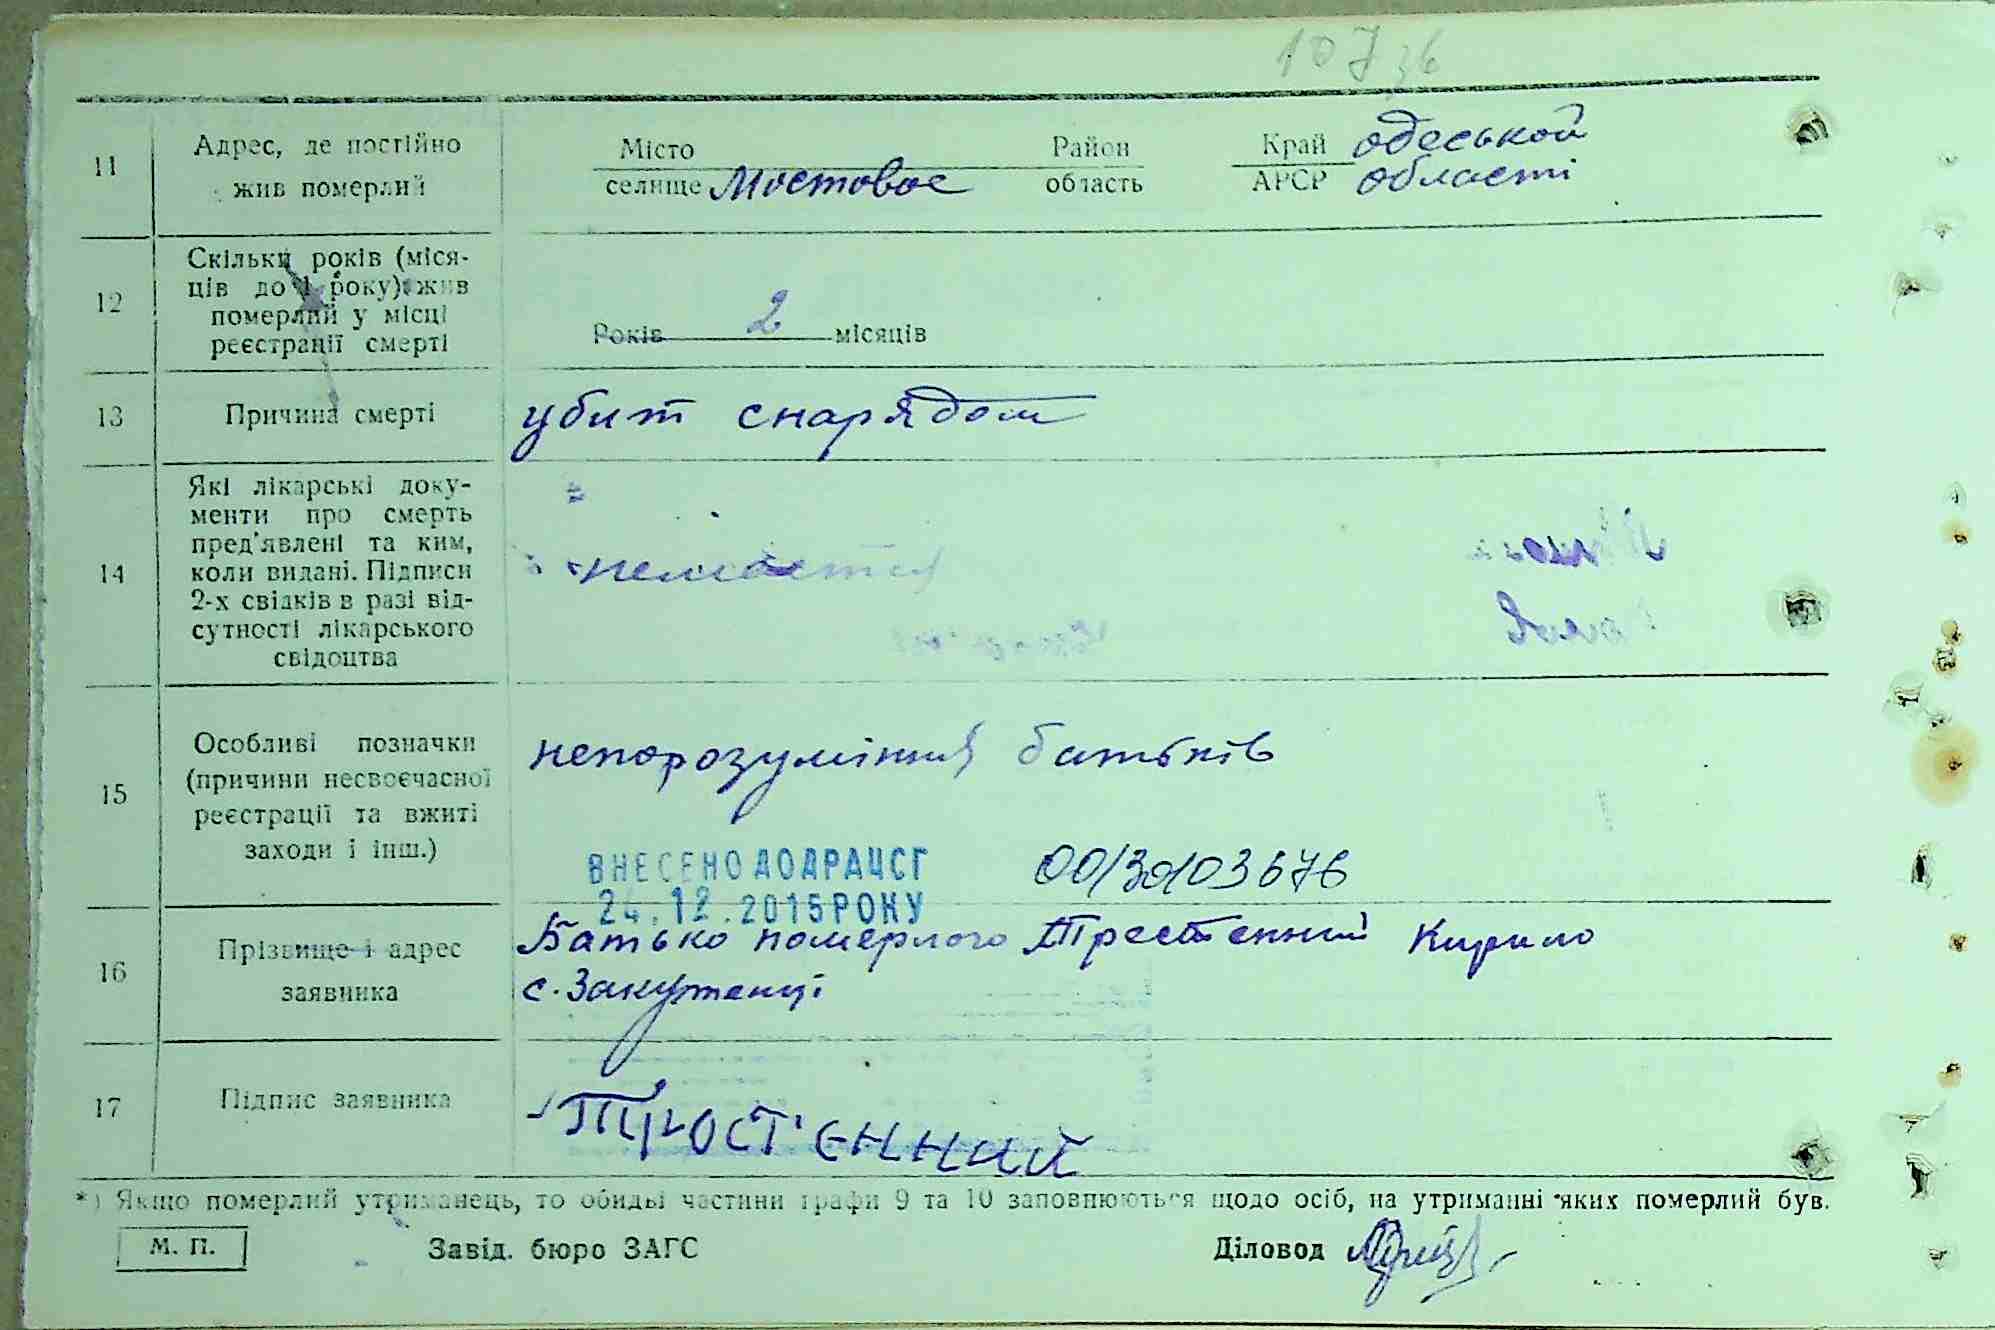 107
11
Адрес, де постійно
жив померлий
Місто
селище Мостовое
Район
область
Край
АРСР
одеськой
області
12
Скільки років (міся-
ців до 1 року) жив
померлий у місці
реєстрації смерті
Років 2 місяців
13
Причина смерті
убит снарядом
14
Які лікарські доку-
менти про смерть
пред'явлені та ким,
коли видані. Підписи
2-х свідків в разі від-
сутності лікарського
свідоцтва
15
Особливі позначки
(причини несвоєчасної
реєстрації та вжиті
заходи і інш.)
непорозуміння батьків
ВНЕСЕНО ДО ДРАЦСГ
24.12.2015 РОКУ
00130103676
16
Прізвище і адрес
заявника
Батько померлого Кирило
с. Закутенці
17
Підпис заявника
ТРОСТ'ЄННИЙ
*) Якщо померлий утриманець, то обидві частини графи 9 та 10 заповнюються щодо осіб, на утриманні яких померлий був.
М. П.
Завід. бюро ЗАГС
Діловод